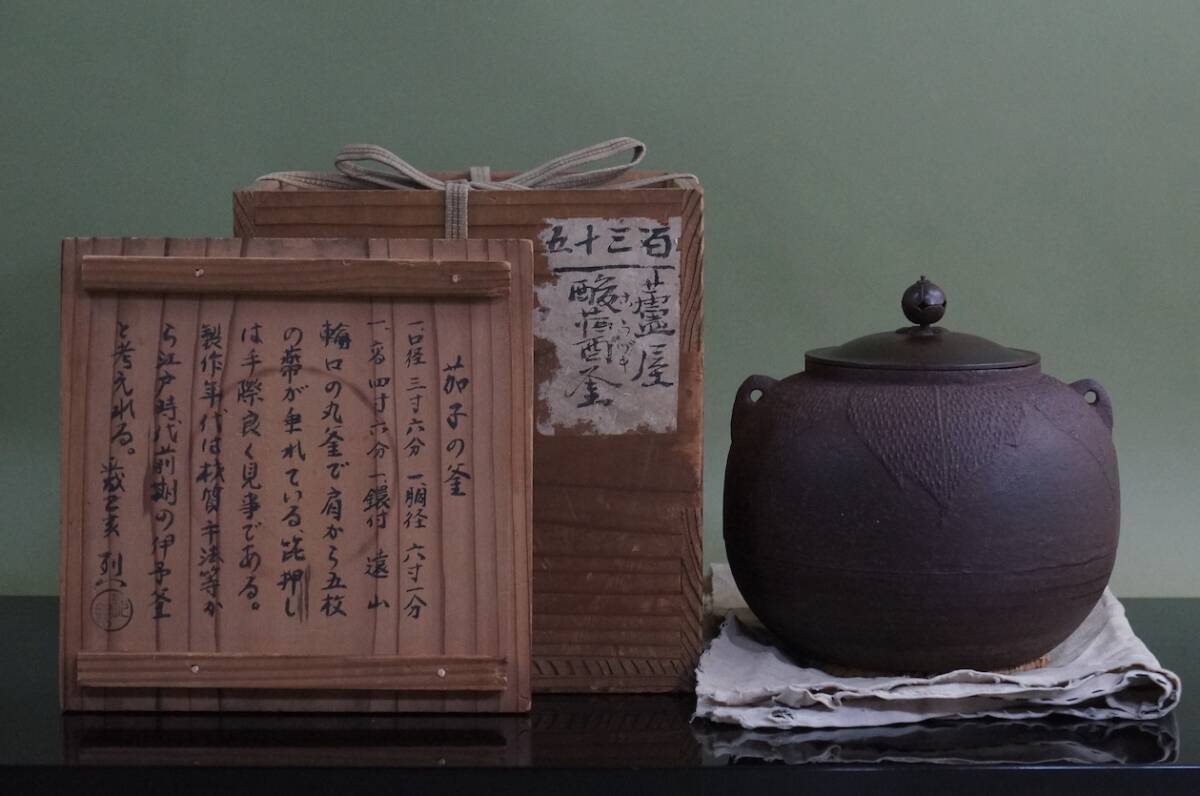 茄子の釜
一、口径 三寸六分 一、胴径 六寸一分
一、高 四寸六分 一、鐶付 遠山
輪口の丸釜で肩から五枚
の蔕が垂れている、箆押し
は手際良く見事である。
製作年代は材質手法等か
ら江戸時代前期の伊予釜
と考えれる。 歳己亥
百三十五
蘆屋
ほうづき
酸醬釜